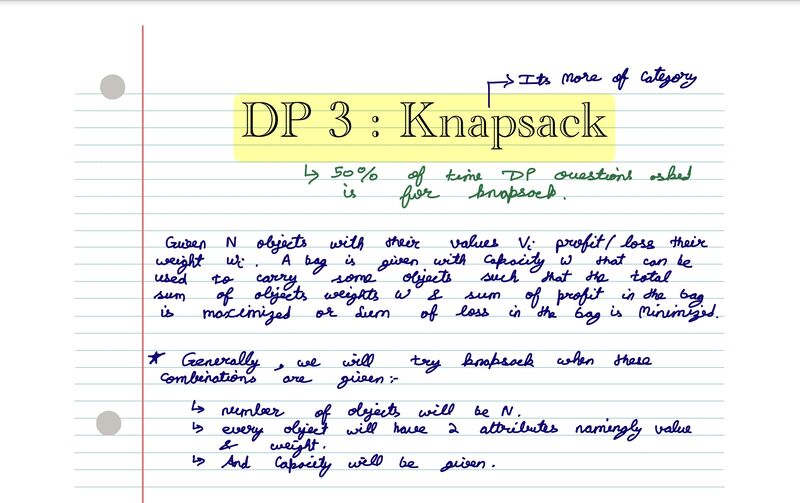 ↳ Its more of category
DP 3 : Knapsack
↳ 50% of time DP questions asked
is for knapsack.
Given N objects with their values Vi profit/loss their
weight Wi. A bag is given with Capacity W that can be
used to carry some objects such that the total
sum of objects weights W & sum of profit in the bag
is maximized or sum of loss in the bag is minimized.
* Generally, we will try knapsack when these
combinations are given:-
↳ number of objects will be N.
↳ every object will have 2 attributes namingly value
& weight.
↳ And Capacity will be given.